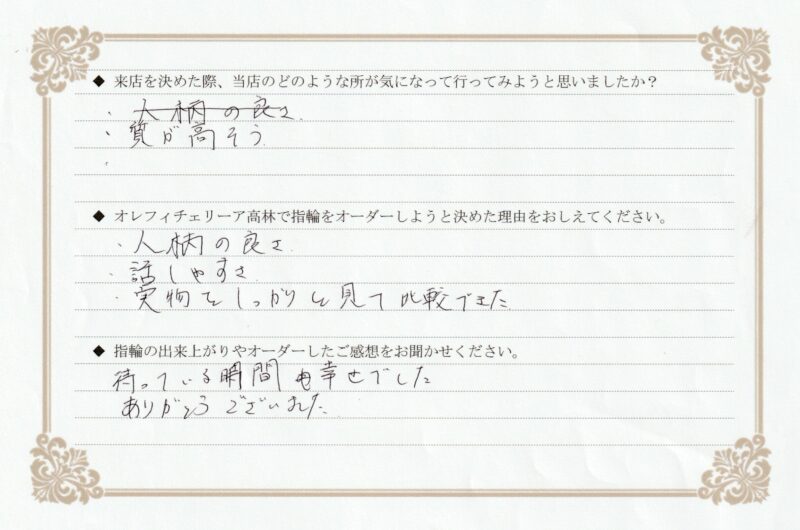 ◆ 来店を決めた際、当店のどのような所が気になって行ってみようと思いましたか？
・人柄の良さ
・質が高そう
◆ オレフィチェリーア高林で指輪をオーダーしようと決めた理由をおしえてください。
・人柄の良さ
・話しやすさ
・実物をしっかりと見て比較できた
◆ 指輪の出来上がりやオーダーしたご感想をお聞かせください。
待っている瞬間も幸せでした
ありがとうございました